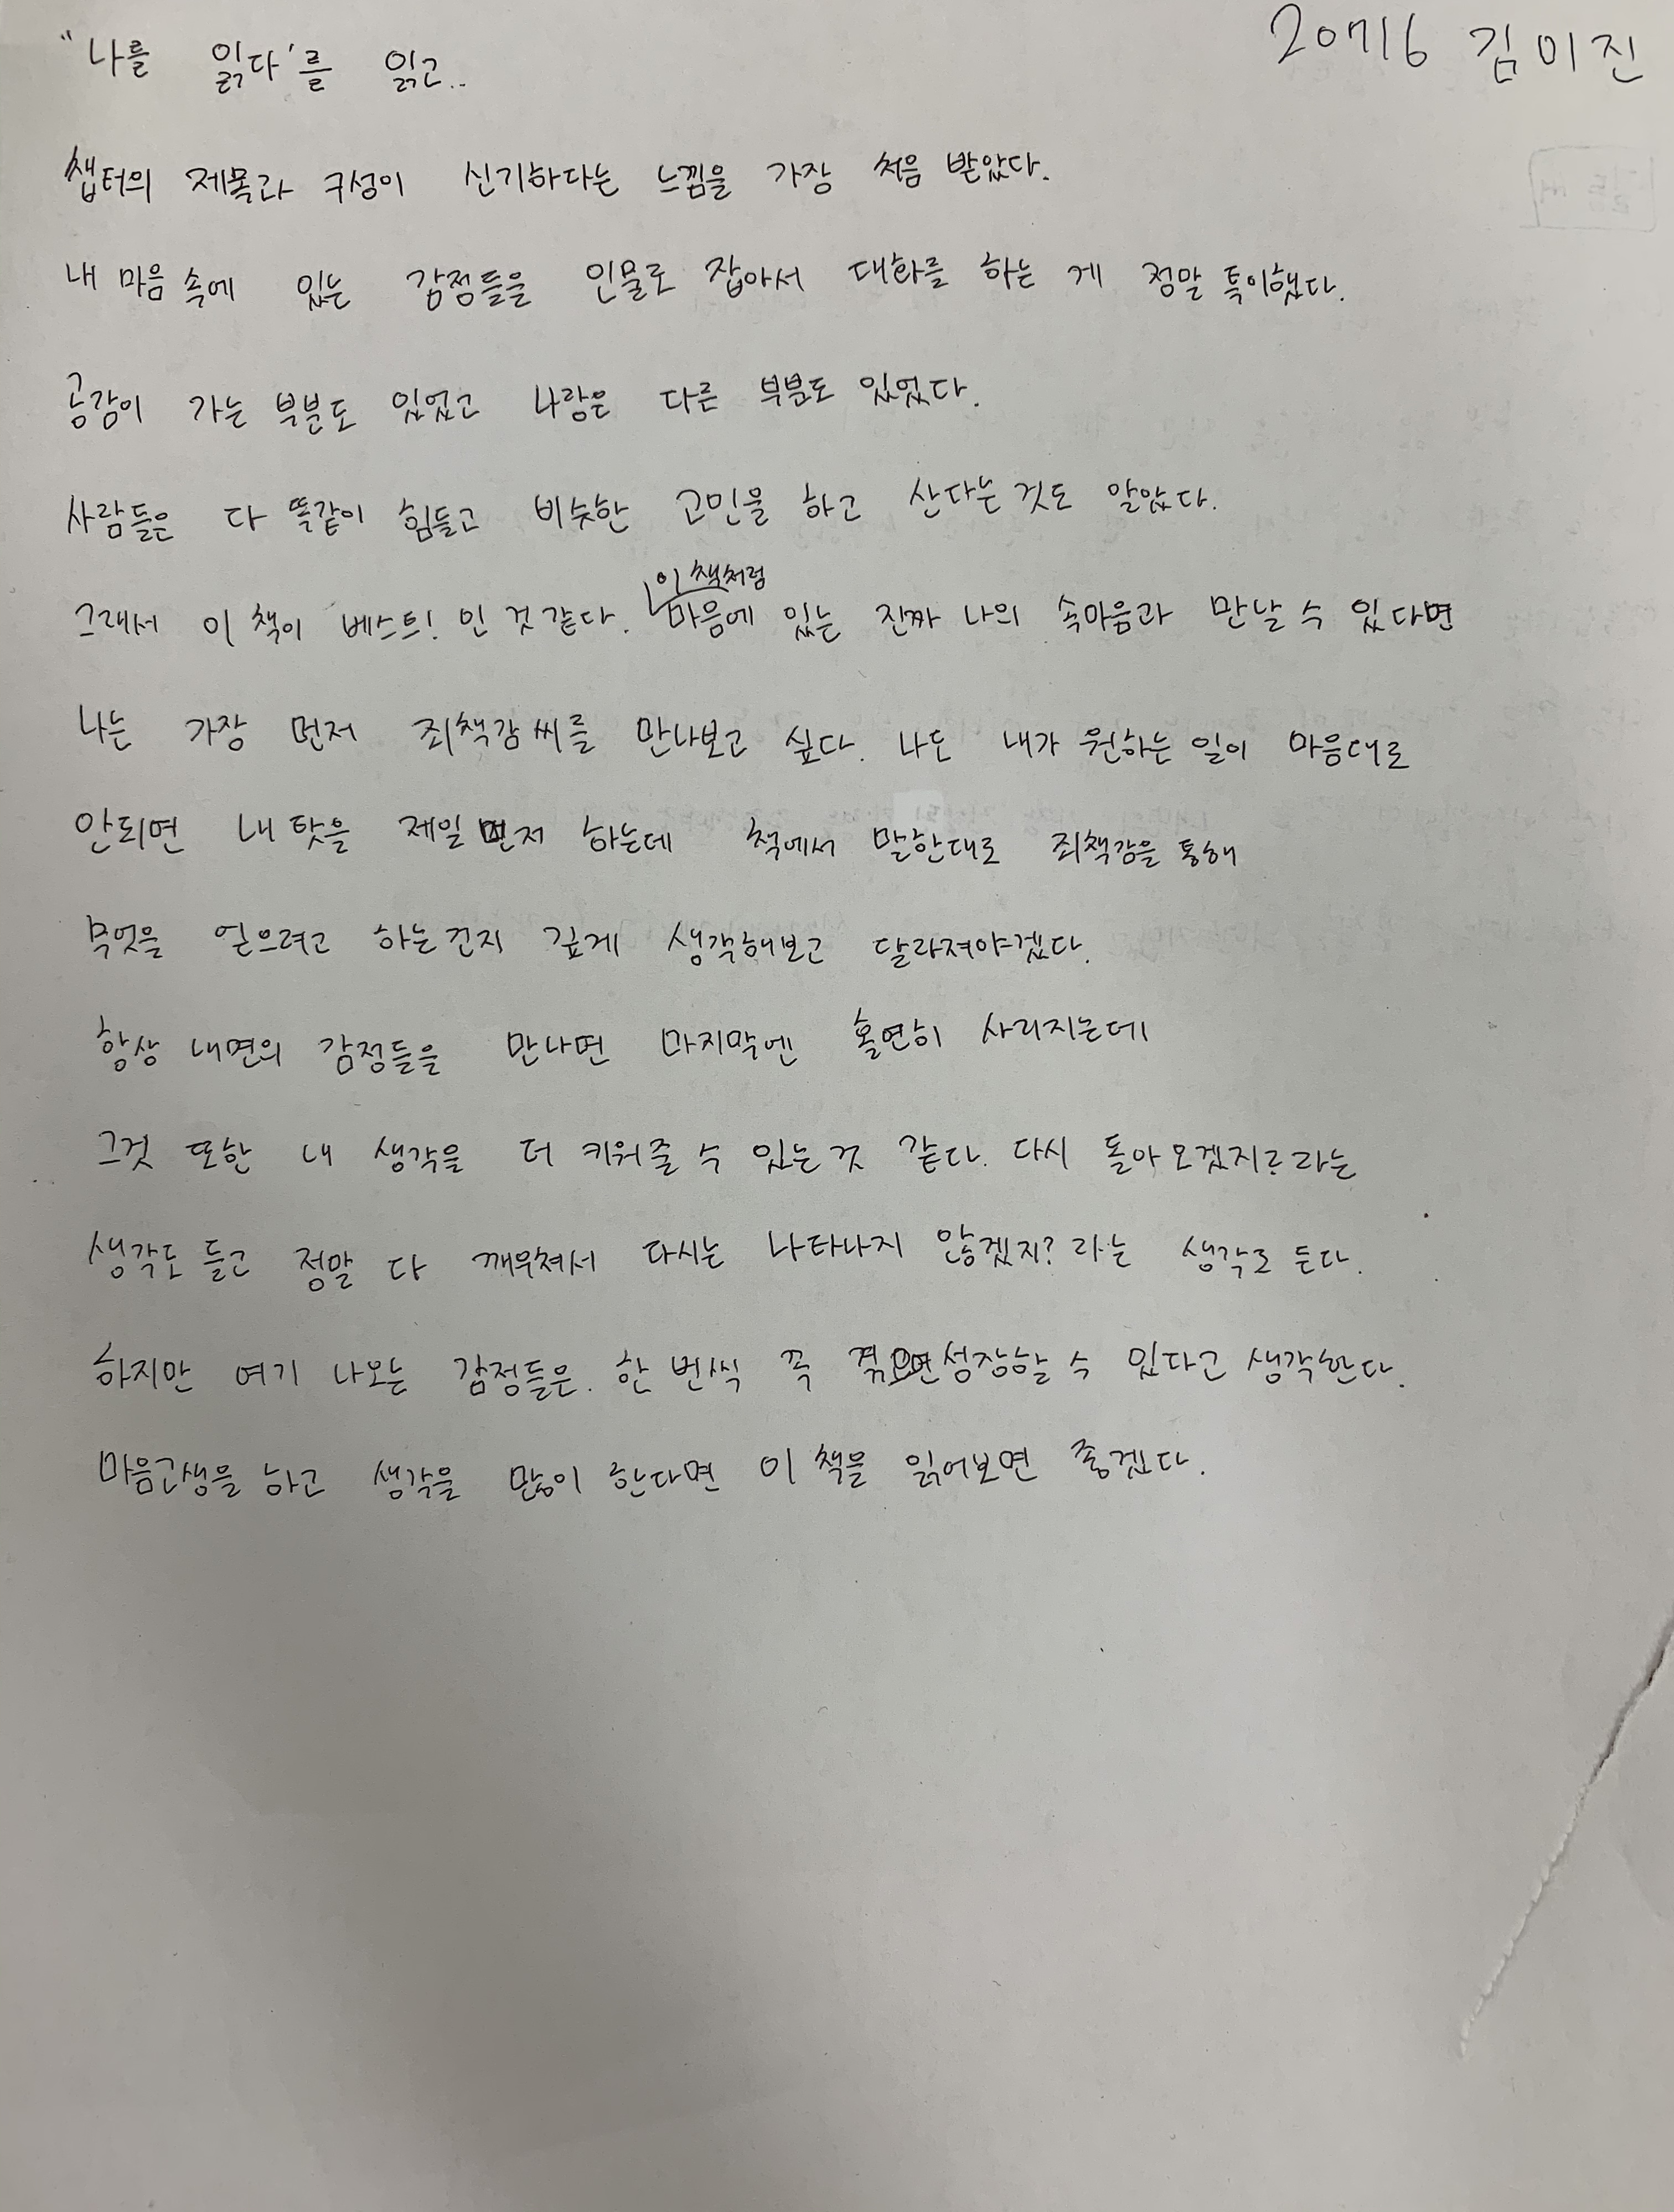 "나를 읽다'를 읽고..
20716 김이진
챕터의 제목과 구성이 신기하다는 느낌을 가장 처음 받았다.
내 마음 속에 있는 감정들을 인물로 잡아서 대화를 하는 게 정말 특이했다.
공감이 가는 부분도 있었고 나랑은 다른 부분도 있었다.
사람들은 다 똑같이 힘들고 비슷한 고민을 하고 산다는 것도 알았다.
그래서 이 책이 베스트! 인 것 같다. 이 책처럼 마음에 있는 진짜 나의 속마음과 만날 수 있다면
나는 가장 먼저 죄책감씨를 만나보고 싶다. 나도 내가 원하는 일이 마음대로
안되면 내 탓을 제일 먼저 하는데 책에서 말한대로 죄책감을 통해
무엇을 얻으려고 하는건지 깊게 생각해보고 달라져야겠다.
항상 내면의 감정들을 만나면 마지막엔 홀연히 사라지는데
그것 또한 내 생각을 더 키워줄 수 있는 것 같다. 다시 돌아오겠지? 라는
생각도 들고 정말 다 깨우쳐서 다시는 나타나지 않겠지? 라는 생각도 든다.
하지만 여기 나오는 감정들은 한 번씩 꼭 겪으면 성장할 수 있다고 생각한다.
마음고생을 하고 생각을 많이 한다면 이 책을 읽어보면 좋겠다.